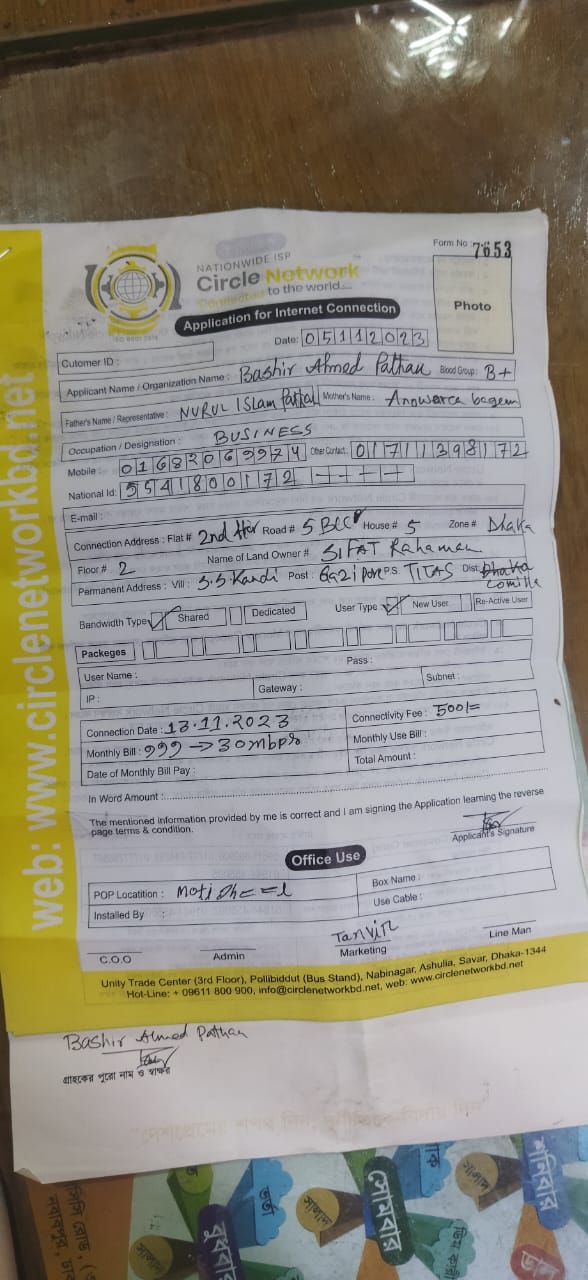 Form No : 7653
NATIONWIDE ISP
Circle Network
Connected to the world...
ISO 9001:2015
Photo
Application for Internet Connection
Date: 05112023
Cutomer ID :
Applicant Name / Organization Name : Bashir Ahmed Pathan Blood Group : B+
Father's Name / Representative : NURUL ISlam Mother's Name : Anowarca begem
Occupation / Designation : BUSINESS
Mobile : 01682069974 Other Contact : 01711398172
National Id: 5541800172
E-mail :
Connection Address : Flat # 2nd Road # 5 House # 5 Zone # Dhaka
Floor # 2 Name of Land Owner # SIFAT Rahaman
Permanent Address : Vill : S.S Kandi Post : Gazi P.S. TITAS Dist. Dhaka
Comilla
Bandwidth Type Shared Dedicated User Type New User Re-Active User
Packeges
User Name : Pass :
IP : Gateway : Subnet :
Connection Date : 13.11.2023 Connectivity Fee : 500/=
Monthly Bill : 999 → 30mbps Monthly Use Bill :
Date of Monthly Bill Pay : Total Amount :
In Word Amount :
The mentioned information provided by me is correct and I am signing the Application learning the reverse
page terms & condition.
Applicant's Signature
Office Use
POP Locatition : Box Name :
Installed By : Use Cable :
Tanvir
C.O.O Admin Marketing Line Man
Unity Trade Center (3rd Floor), Pollibiddut (Bus Stand), Nabinagar, Ashulia, Savar, Dhaka-1344
Hot-Line: + 09611 800 900, info@circlenetworkbd.net, web: www.circlenetworkbd.net
web: www.circlenetworkbd.net
Bashir Ahmed Pathan
গ্রাহকের পুরো নাম ও স্বাক্ষর
শনিবার
সোমবার
বুধবার